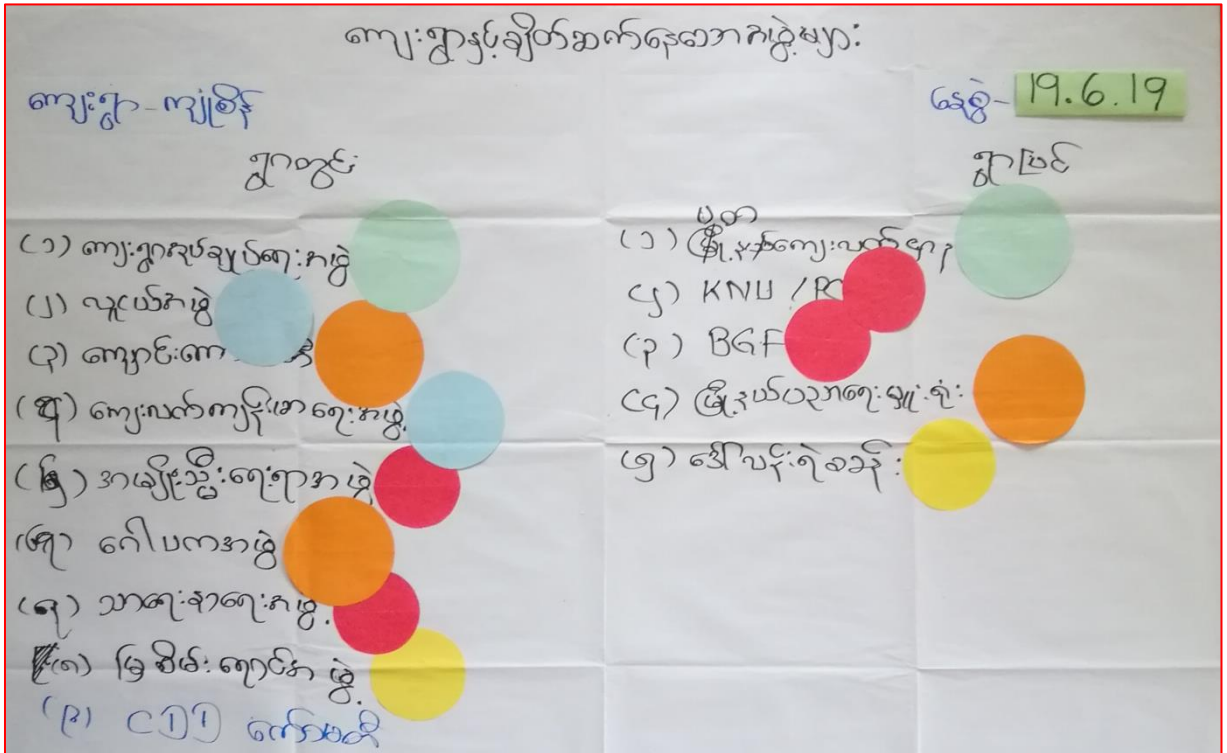 ကျေးရွာနှင့်ချိတ်ဆက်နေသောအဖွဲ့များ
ကျေးရွာ - ကျုံစိန်
နေ့စွဲ - 19.6.19
ရွာတွင်း
(၁) ကျေးရွာအုပ်ချုပ်ရေးအဖွဲ့
(၂) လူငယ်အဖွဲ့
(၃) ကျောင်းကော
(၄) ကျေးလက်ကျန်းမာရေးအဖွဲ့
(၅) အမျိုးသမီးရေးရာအဖွဲ့
(၆) ဂေါပကအဖွဲ့
(၇) သာရေးနာရေးအဖွဲ့
(၈) မြစိမ်းရောင်အဖွဲ့
(၉) CDD ကော်မတီ
ရွာပြင်
(၁) ကျေးလက်
(၂) KNU / PC
(၃) BGF
(၄) မြို့နယ်ပညာရေးမှူးရုံး
(၅) ဒေါ်ပန်းရဲစခန်း